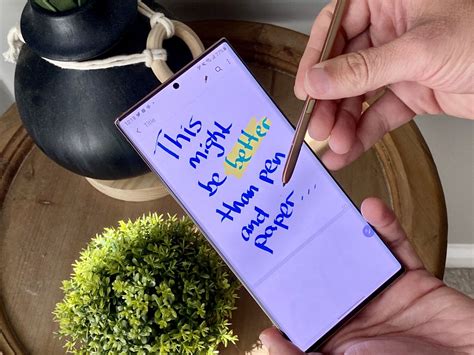 Title
This
might
be better
than pen
and
paper...